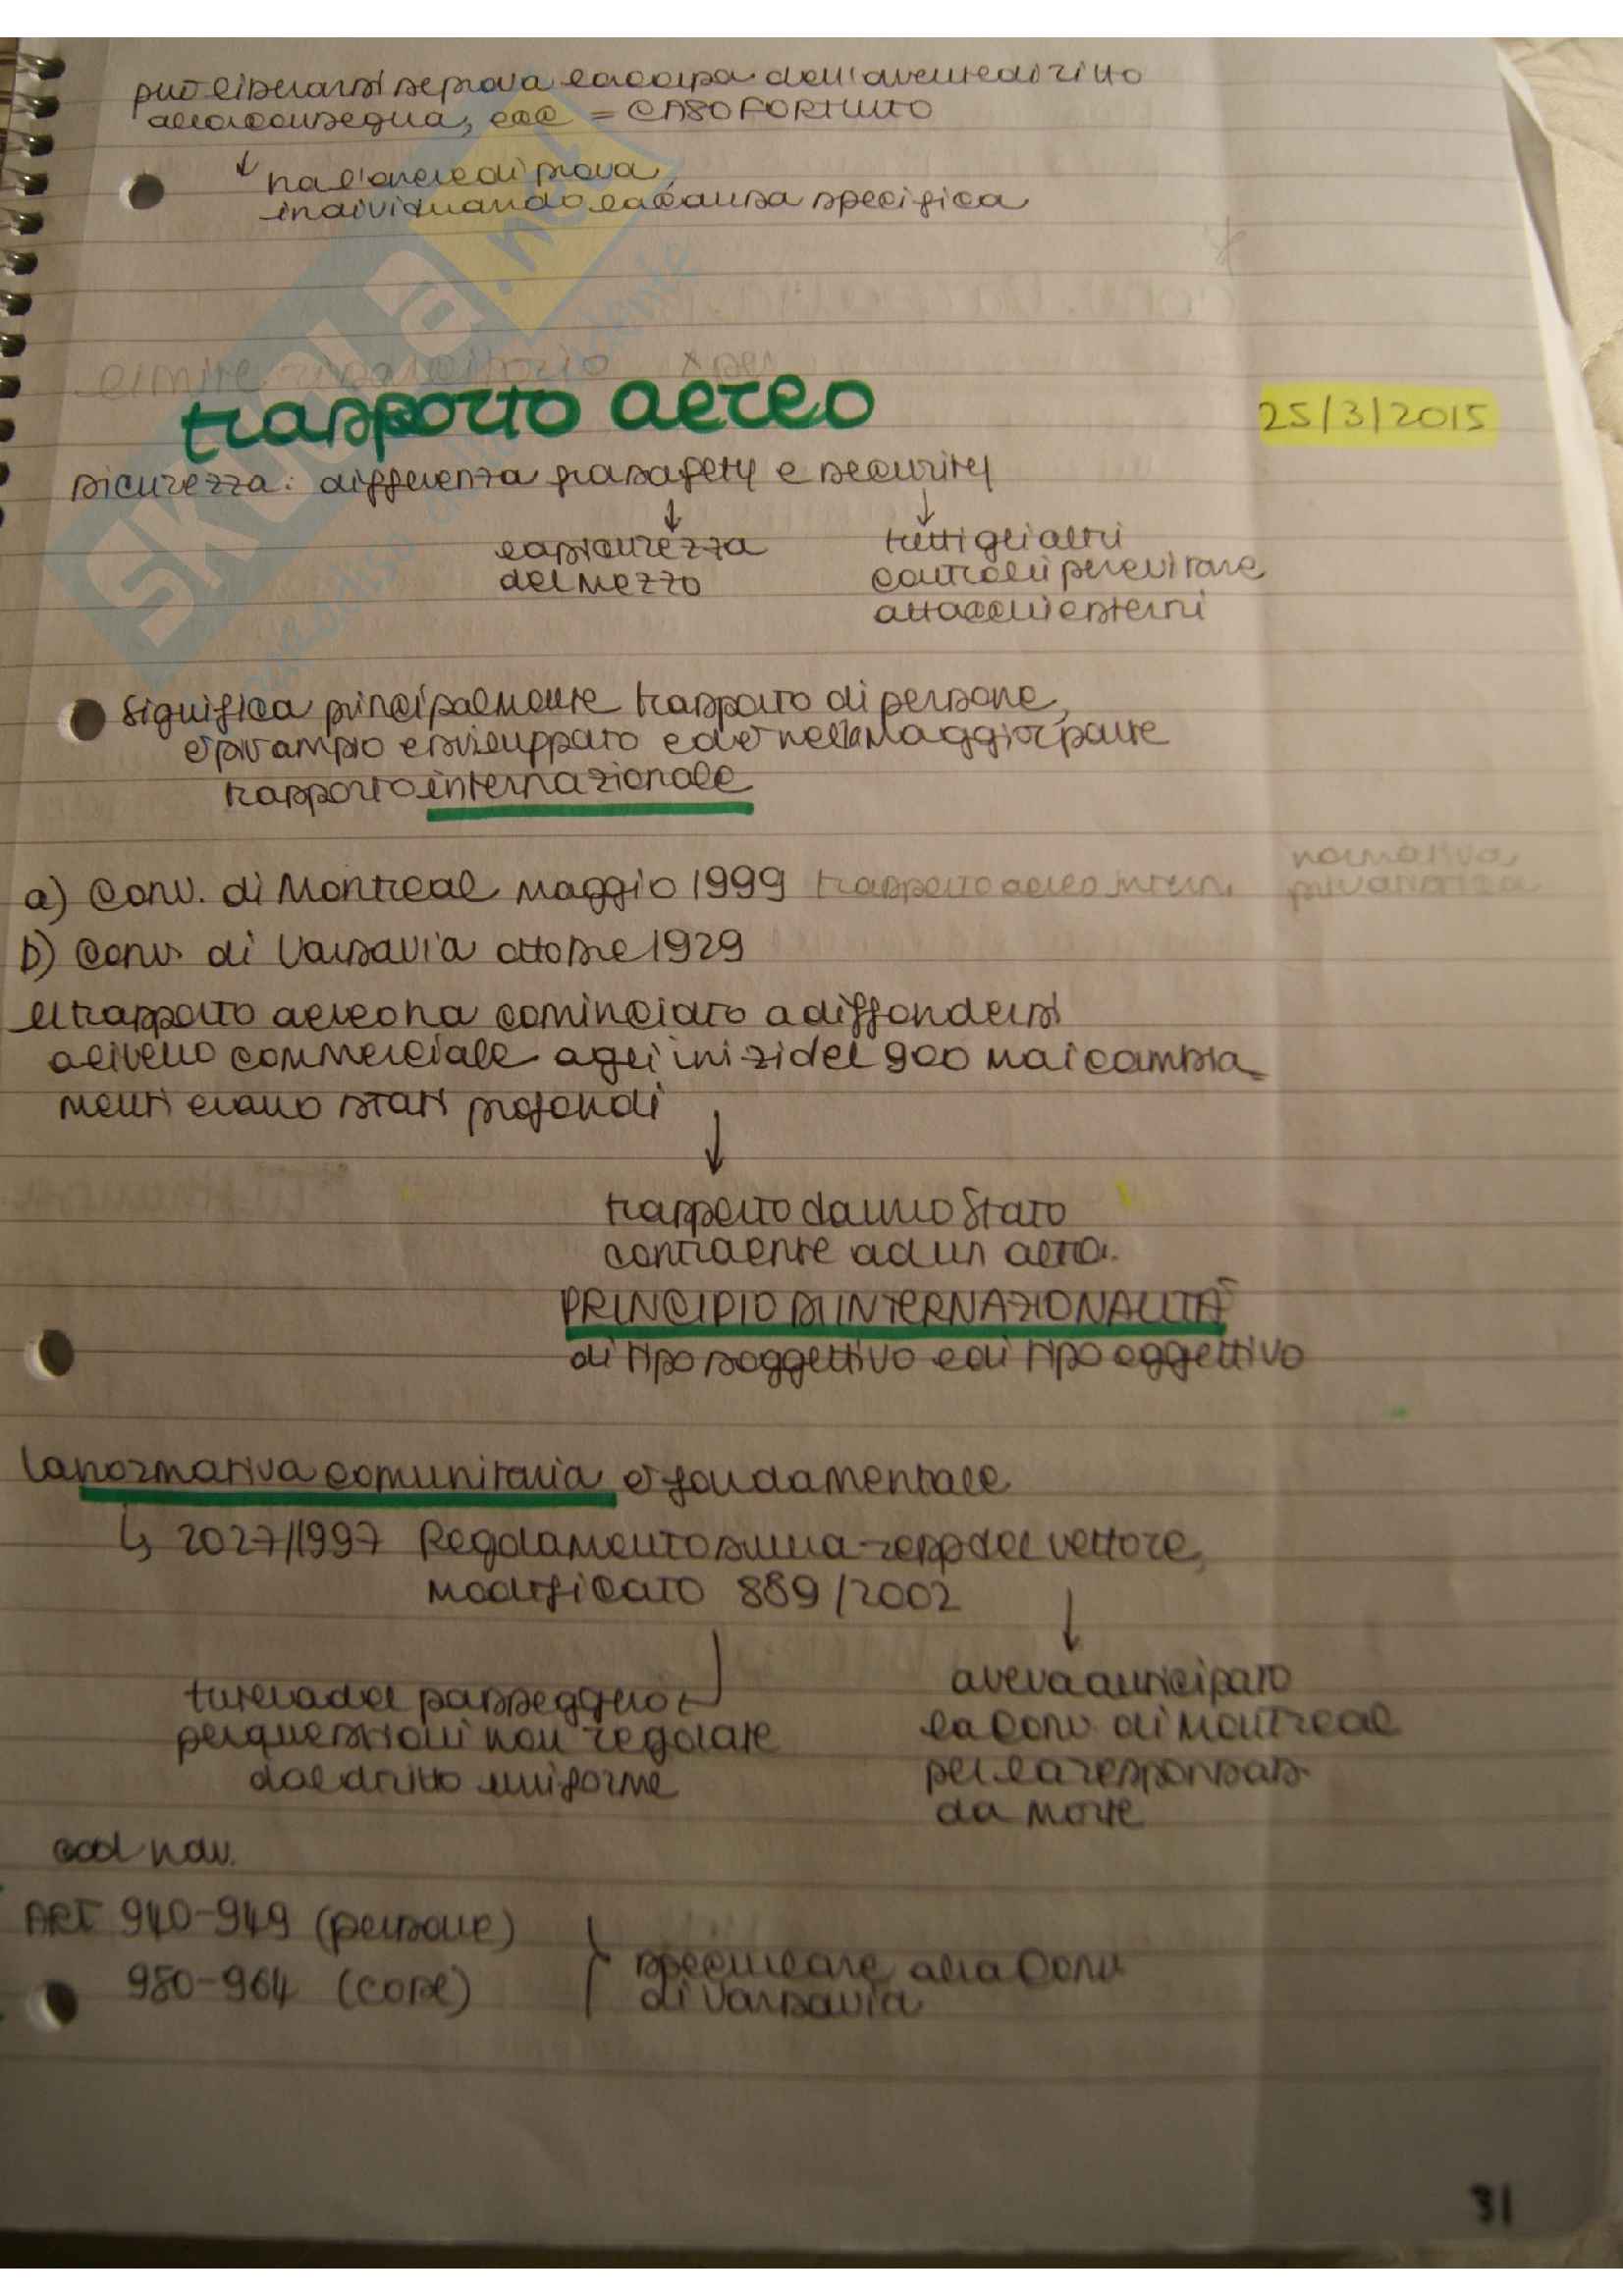 può liberarsi se prova la colpa dell'avente diritto
alla consegna, ecc = CASO FORTUITO
↓ ha l'onere di prova,
individuando la causa specifica
limite risarcitorio
trasporto aereo
25/3/2015
sicurezza: differenza fra safety e security
↓ ↓
la sicurezza tutti gli altri
del mezzo controlli per evitare
attacchi esterni
Significa principalmente trasporto di persone,
è più ampio e sviluppato ed è nella maggior parte
trasporto internazionale
normativa
a) Conv. di Montreal maggio 1999 trasporto aereo intern. privatistica
b) Conv. di Varsavia ottobre 1929
il trasporto aereo ha cominciato a diffondersi
a livello commerciale agli inizi del 900 ma i cambia-
menti erano stati profondi
↓
trasporto da uno Stato
contraente ad un altro.
PRINCIPIO DI INTERNAZIONALITÀ
di tipo soggettivo e di tipo oggettivo
La normativa comunitaria è fondamentale
↳ 2027/1997 Regolamento sulla resp del vettore,
modificato 889/2002
↓
tutela del passeggero aveva anticipato
per questioni non regolate la Conv. di Montreal
dal diritto uniforme per la responsab.
da morte
cod nav.
ART 940-949 (persone)
950-964 (cose) } speculare alla Conv
di Varsavia
31
SKUOLA.net